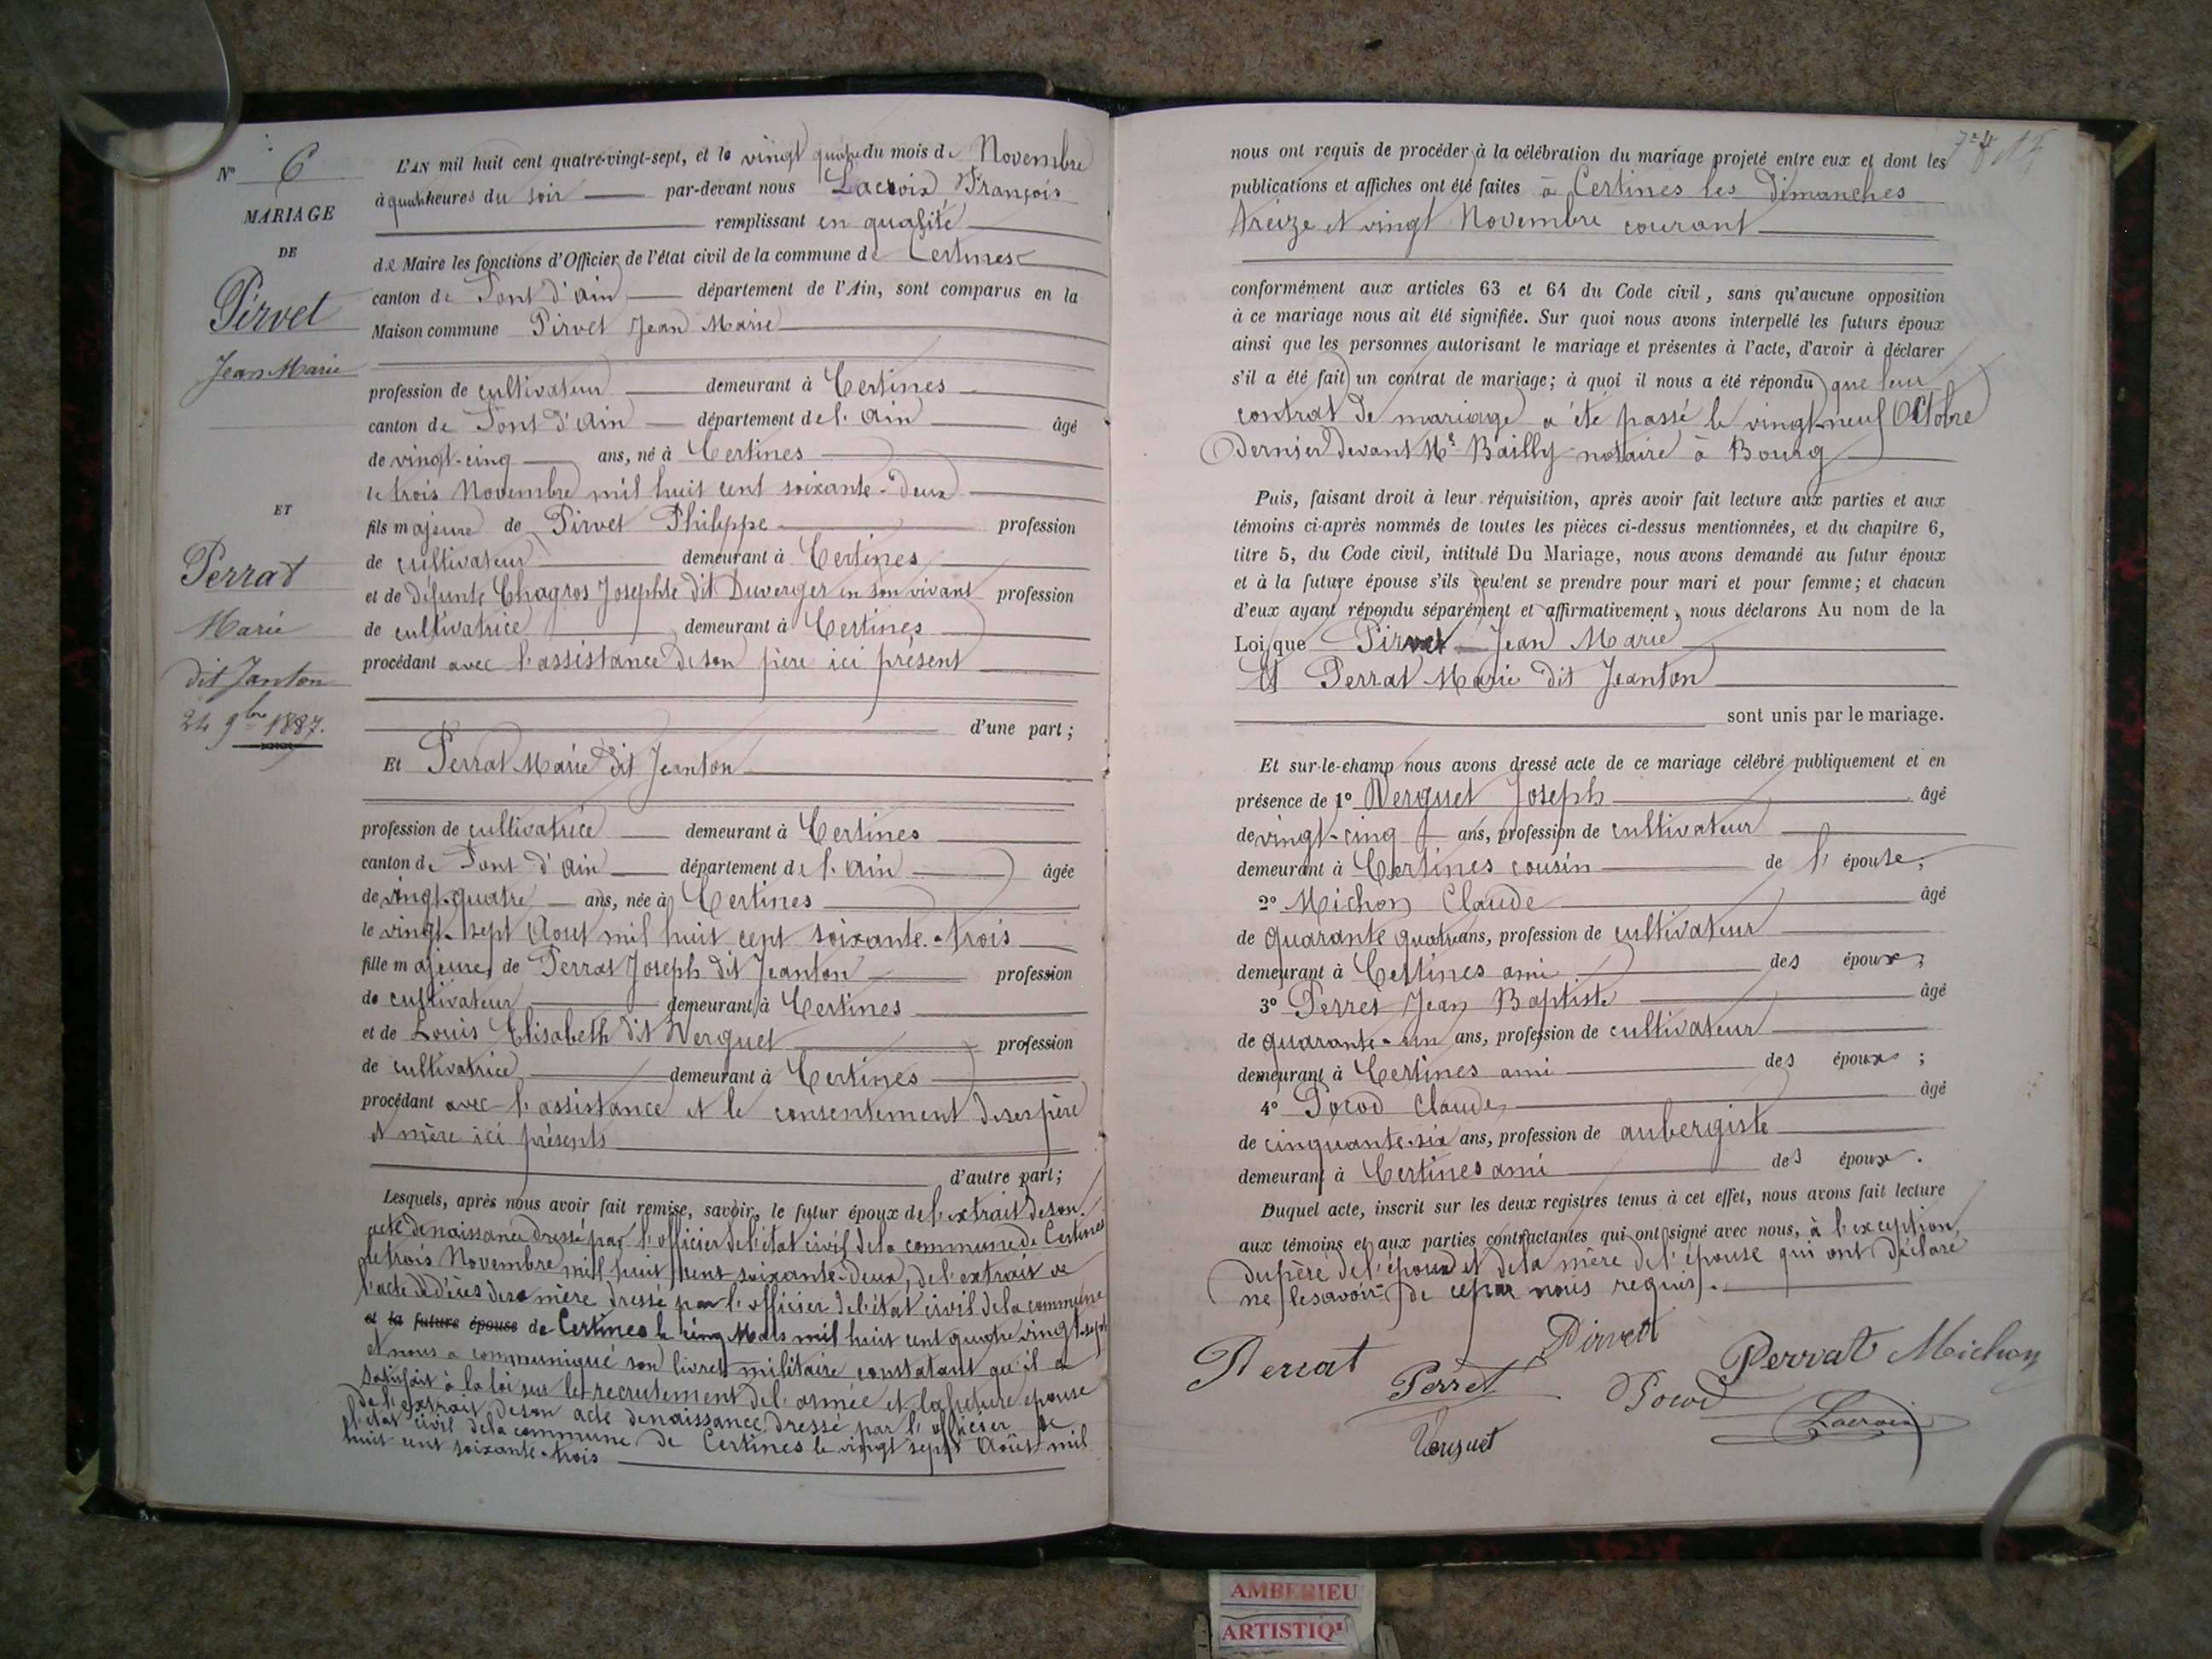 N° 6
MARIAGE
DE
Pirvet
Jean Marie
ET
Perrat
Marie
dit Janton
24 9bre 1887.
L'AN mil huit cent quatre-vingt-sept, et le vingt quatre du mois de Novembre
à quatre heures du soir par-devant nous Lacroix François
remplissant en qualité
de Maire les fonctions d'Officier de l'état civil de la commune de Certines
canton de Pont d'Ain département de l'Ain, sont comparus en la
Maison commune Pirvet Jean Marie
profession de cultivateur demeurant à Certines
canton de Pont d'Ain département de l'Ain âgé
de vingt-cinq ans, né à Certines
le trois Novembre mil huit cent soixante-deux
fils majeure de Pirvet Philippe profession
de cultivateur demeurant à Certines
et de défunte Chagros Josephte dit Duverger en son vivant profession
de cultivatrice demeurant à Certines
procédant avec l'assistance de son père ici présent
d'une part;
Et Perrat Marie dit Jeanton
profession de cultivatrice demeurant à Certines
canton de Pont d'Ain département de l'Ain âgée
de vingt-quatre ans, née à Certines
le vingt-sept Aout mil huit cent soixante-trois
fille majeure, de Perrat Joseph dit Jeanton profession
de cultivateur demeurant à Certines
et de Louis Elisabeth dit Verguet profession
de cultivatrice demeurant à Certines
procédant avec l'assistance et le consentement de ses père
et mère ici présents
d'autre part;
Lesquels, après nous avoir fait remise, savoir, le futur époux de l'extrait de son
acte de naissance dressé par l'officier de l'état civil de la commune de Certines
le trois Novembre mil huit cent soixante-deux, de l'extrait de
l'acte de décès de sa mère dressé par l'officier de l'état civil de la commune
et la future épouse de Certines le cinq Mars mil huit cent quatre vingt-sept
et nous a communiqué son livret militaire constatant qu'il a
satisfait à la loi sur le recrutement de l'armée et la future épouse
de l'extrait de son acte de naissance dressé par l'officier de
l'état civil de la commune de Certines le vingt sept Août mil
huit cent soixante-trois
nous ont requis de procéder à la célébration du mariage projeté entre eux et dont les
publications et affiches ont été faites à Certines les dimanches
treize et vingt Novembre courant
conformément aux articles 63 et 64 du Code civil, sans qu'aucune opposition
à ce mariage nous ait été signifiée. Sur quoi nous avons interpellé les futurs époux
ainsi que les personnes autorisant le mariage et présentes à l'acte, d'avoir à déclarer
s'il a été fait un contrat de mariage; à quoi il nous a été répondu que leur
contrat de mariage a été passé le vingt-neuf Octobre
Dernier devant Me Bailly notaire à Bourg
Puis, faisant droit à leur réquisition, après avoir fait lecture aux parties et aux
témoins ci-après nommés de toutes les pièces ci-dessus mentionnées, et du chapitre 6,
titre 5, du Code civil, intitulé Du Mariage, nous avons demandé au futur époux
et à la future épouse s'ils veulent se prendre pour mari et pour femme; et chacun
d'eux ayant répondu séparément et affirmativement, nous déclarons Au nom de la
Loi que Pirvet Jean Marie
Et Perrat Marie dit Jeanton
sont unis par le mariage.
Et sur-le-champ nous avons dressé acte de ce mariage célébré publiquement et en
présence de 1° Verguet Joseph âgé
de vingt-cinq ans, profession de cultivateur
demeurant à Certines cousin de l'épouse;
2° Michon Claude âgé
de quarante quatre ans, profession de cultivateur
demeurant à Certines ami des époux;
3° Perret Jean Baptiste âgé
de quarante-un ans, profession de cultivateur
demeurant à Certines ami des époux;
4° Pocod Claude, âgé
de cinquante-six ans, profession de aubergiste
demeurant à Certines ami des époux.
Duquel acte, inscrit sur les deux registres tenus à cet effet, nous avons fait lecture
aux témoins et aux parties contractantes qui ont signé avec nous, à l'exception
du père de l'époux et de la mère de l'épouse qui ont déclaré
ne le savoir de ce par nous requis.
Perrat Perret Pirvet Pocod Perrat Michon
Verguet Lacroix
AMBERIEU
ARTISTIQ